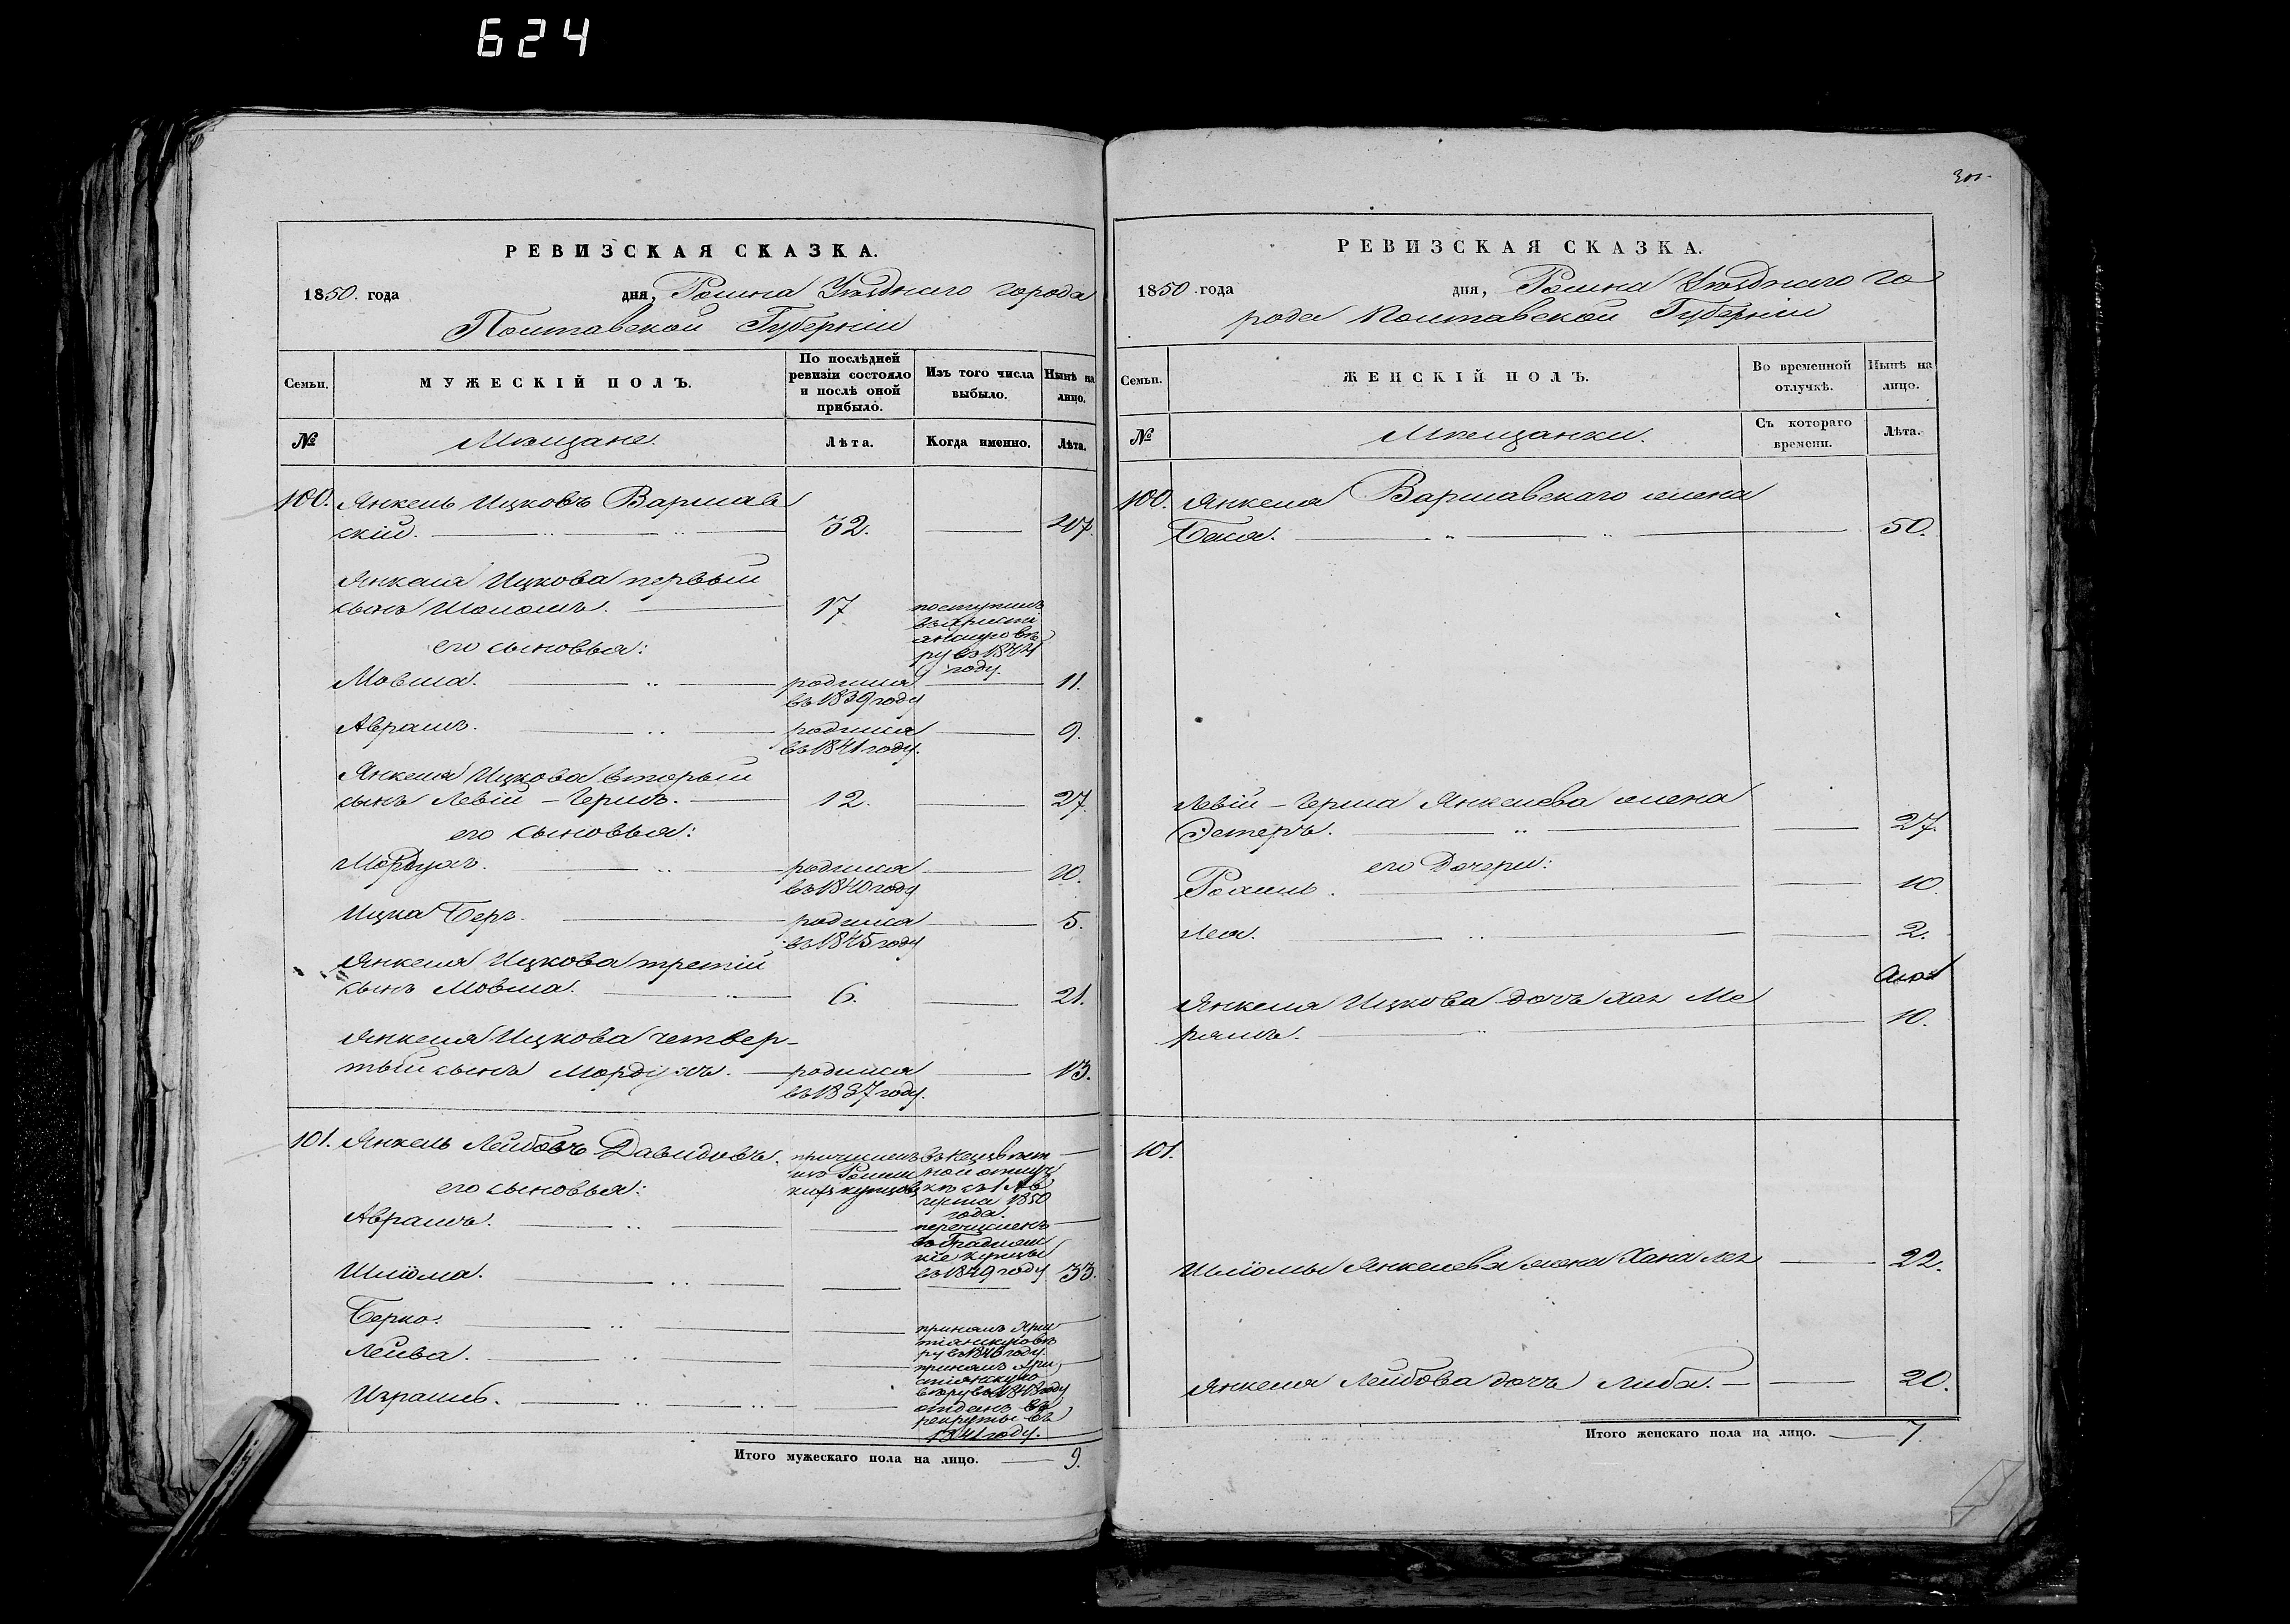 624
РЕВИЗСКАЯ СКАЗКА.
1850. года дня, Ромна Уѣзднаго города
Полтавской Губерніи
Семьи.
МУЖЕСКІЙ ПОЛЪ.
По послѣдней
ревизіи состояло
и послѣ оной
прибыло.
Изъ того числа
выбыло.
Нынѣ на
лицо.
№
Мѣщане.
Лѣта.
Когда именно.
Лѣта.
100. Янкель Ицковъ Варшав
скій. 32. 47.
Янкеля Ицкова первый
сынъ Шоломъ. 17 поступилъ
въ 1844
году.
его сыновья:
Мовша. родился 11.
въ 1839 году
Абрамъ. родился 9.
въ 1841 году.
Янкеля Ицкова вторый
сынъ Левій - Гершъ. 12. 27
его сыновья:
Мордухъ. родился 10.
въ 1840 году
Ицка Беръ. родился 5.
въ 1845 году
Янкеля Ицкова третій
сынъ Мовша. 6. 21.
Янкеля Ицкова четвер-
тый сынъ Мордухъ. родился 13.
въ 1837 году.
101. Янкель Лейбовъ Давидовъ. причисленъ
изъ Ромен
скихъ купцовъ
въ безвѣст
ной отлуч
кѣ съ 1 Ав
густа 1850
года.
его сыновья:
Абрамъ. перечисленъ
въ Градиж
кіе купцы
въ 1849 году
Шліома. 33.
Берко. принялъ Хри
стіянскую вѣ
ру въ 1846 году.
Лейба. принялъ Хри
стіянскую
вѣру въ 1843 году
Израиль. отданъ въ
рекруты въ
1841 году.
Итого мужескаго пола на лицо. 9.
РЕВИЗСКАЯ СКАЗКА.
1850 года дня, Ромна Уѣзднаго го
рода Полтавской Губерніи
Семьи.
ЖЕНСКІЙ ПОЛЪ.
Во временной
отлучкѣ.
Нынѣ на
лицо.
№
Мѣщанки.
Съ котораго
времени.
Лѣта.
100. Янкеля Варшавскаго жена
Бася. 50.
Левій - Герша Янкелева жена
Эстеръ. 27.
его Дочери:
Рохиль. 10
Лея. 2.
Янкеля Ицкова дочь Хая Ме
рямъ. 10.
101.
Шліомы Янкелева жена Хана Лея 22.
Янкеля Лейбова дочь Либа. 20.
Итого женскаго пола на лицо. 7.